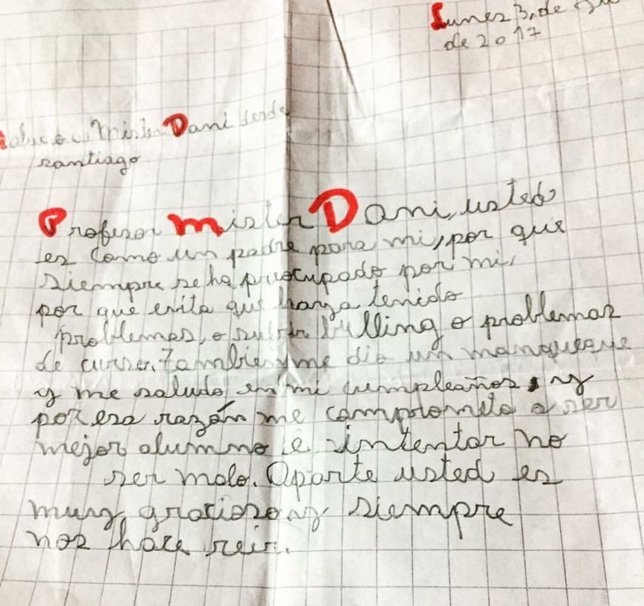 Lunes 3, de
de 2017
Mister Dani desde
santiago
Profesor Mister Dani, usted
es como un padre para mi, por que
siempre se ha preocupado por mi,
por que evita que haaga tenido
problemas, o subrir bulling o problemas
de curso. También me dio un manqueque
y me saludo en mi cumpleaños, y
por esa razón me comprometo a ser
mejor alumno e intentar no
ser malo. Aparte usted es
muy gracioso y siempre
nos hace reir.